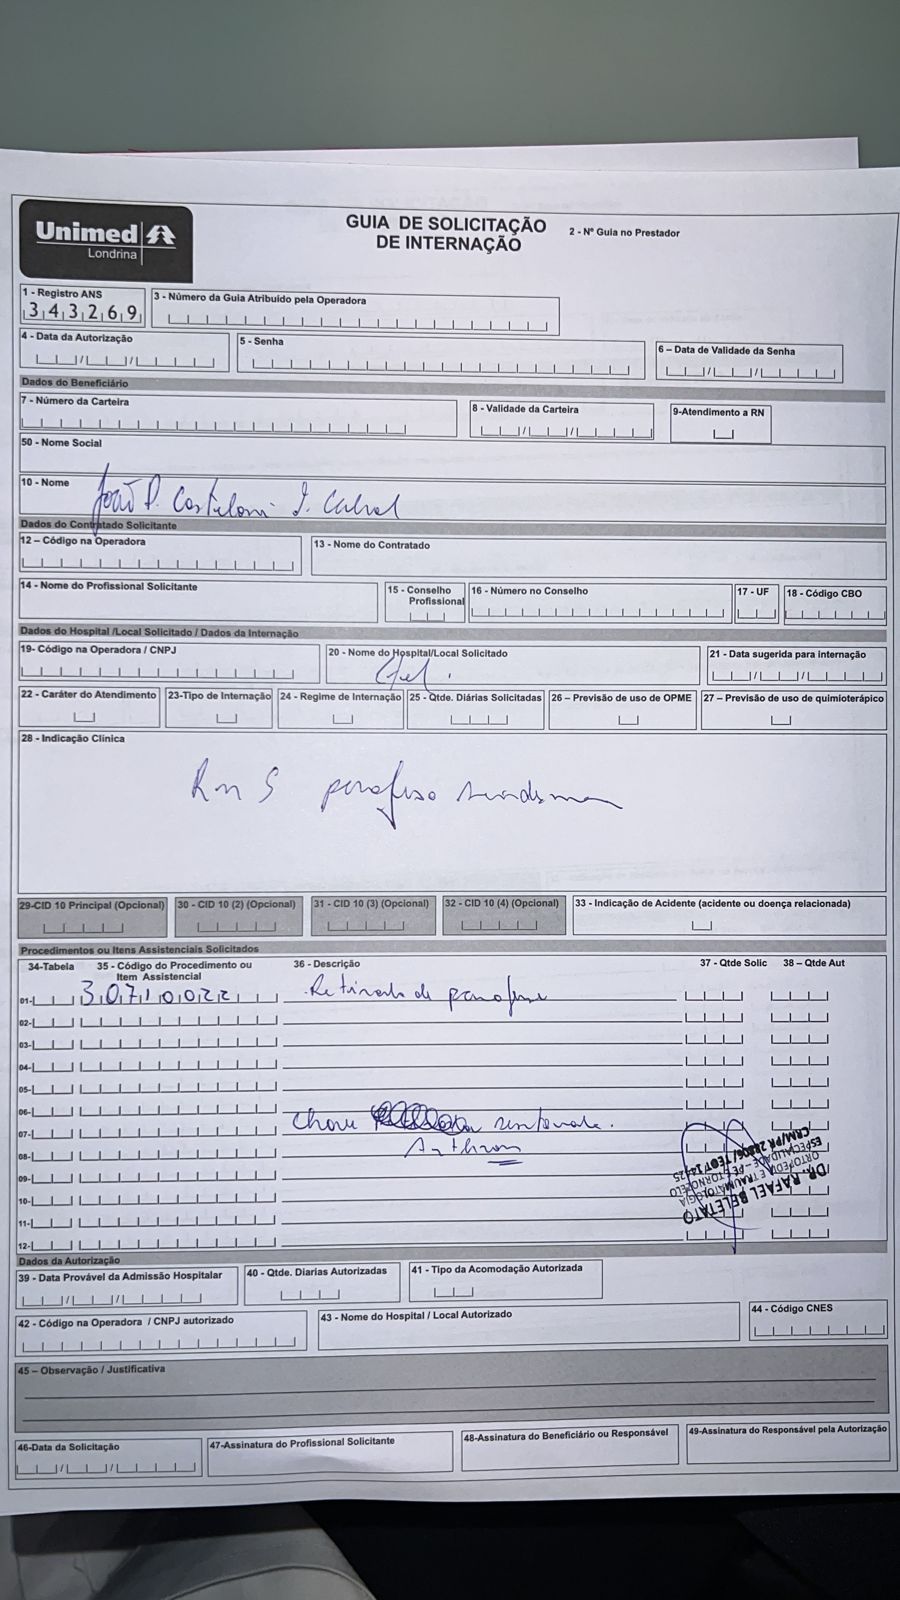 Unimed
Londrina
GUIA DE SOLICITAÇÃO
DE INTERNAÇÃO
2 - Nº Guia no Prestador
1 - Registro ANS
343269
3 - Número da Guia Atribuido pela Operadora
4 - Data da Autorização
5 - Senha
6 – Data de Validade da Senha
Dados do Beneficiário
7 - Número da Carteira
8 - Validade da Carteira
9-Atendimento a RN
50 - Nome Social
10 - Nome
João P.
Dados do Contratado Solicitante
12 – Código na Operadora
13 - Nome do Contratado
14 - Nome do Profissional Solicitante
15 - Conselho
Profissional
16 - Número no Conselho
17 - UF
18 - Código CBO
Dados do Hospital /Local Solicitado / Dados da Internação
19- Código na Operadora / CNPJ
20 - Nome do Hospital/Local Solicitado
21 - Data sugerida para internação
22 - Caráter do Atendimento
23-Tipo de Internação
24 - Regime de Internação
25 - Qtde. Diárias Solicitadas
26 – Previsão de uso de OPME
27 – Previsão de uso de quimioterápico
28 - Indicação Clínica
parafuso
29-CID 10 Principal (Opcional)
30 - CID 10 (2) (Opcional)
31 - CID 10 (3) (Opcional)
32 - CID 10 (4) (Opcional)
33 - Indicação de Acidente (acidente ou doença relacionada)
Procedimentos ou Itens Assistenciais Solicitados
34-Tabela
35 - Código do Procedimento ou
Item Assistencial
36 - Descrição
37 - Qtde Solic
38 – Qtde Aut
01- 30710022 Retirada de parafuso
02-
03-
04-
05-
06-
07- Chave
08-
09-
10-
11-
12-
DR. RAFAEL BELETATO
ORTOPEDIA E TRAUMATOLOGIA
ESPECIALIDADE - PÉ E TORNOZELO
CRM/PR
Dados da Autorização
39 - Data Provável da Admissão Hospitalar
40 - Qtde. Diarias Autorizadas
41 - Tipo da Acomodação Autorizada
42 - Código na Operadora / CNPJ autorizado
43 - Nome do Hospital / Local Autorizado
44 - Código CNES
45 – Observação / Justificativa
46-Data da Solicitação
47-Assinatura do Profissional Solicitante
48-Assinatura do Beneficiário ou Responsável
49-Assinatura do Responsável pela Autorização